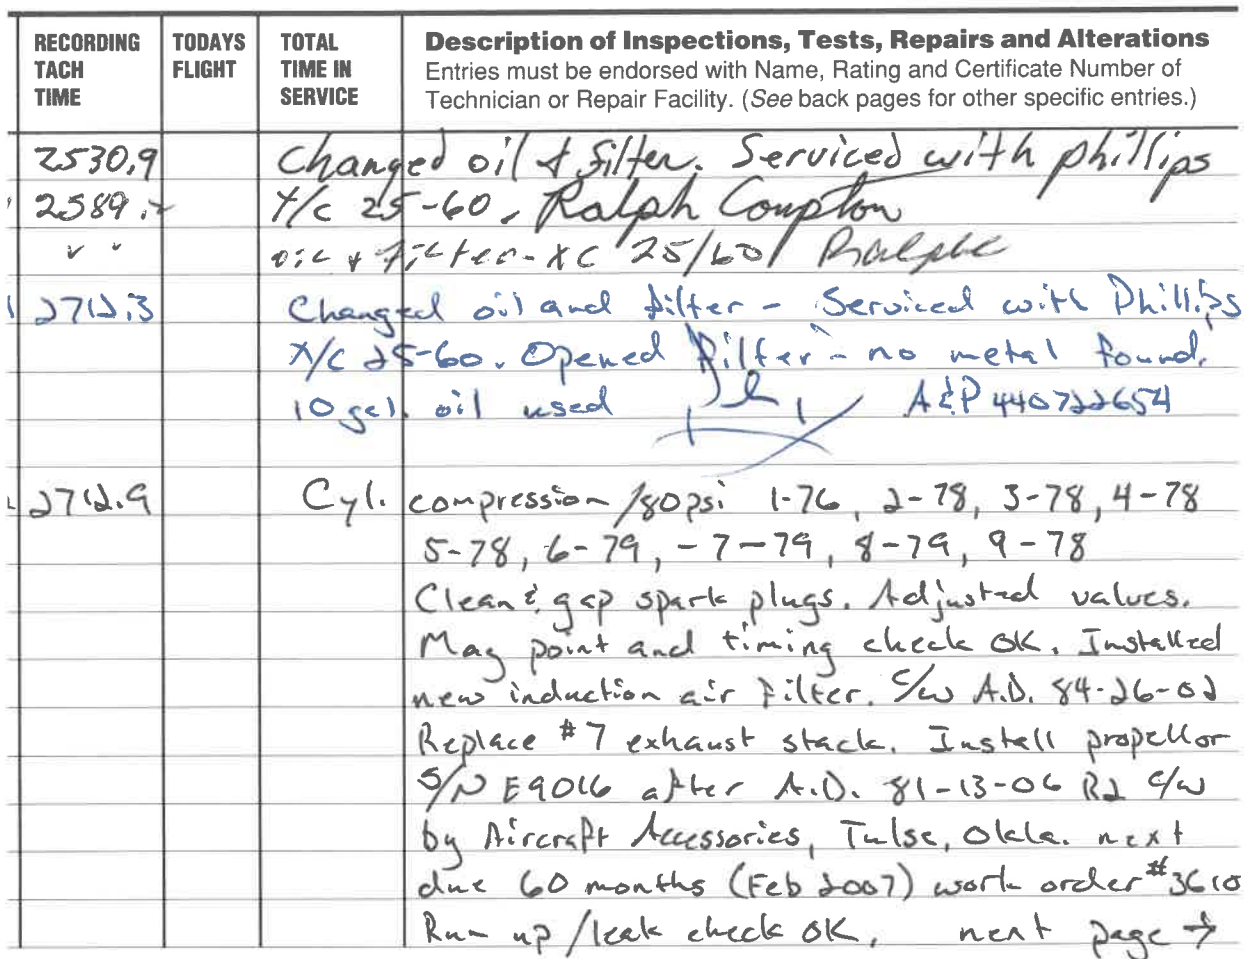 RECORDING TACH TIME
TODAYS FLIGHT
TOTAL TIME IN SERVICE
Description of Inspections, Tests, Repairs and Alterations
Entries must be endorsed with Name, Rating and Certificate Number of
Technician or Repair Facility. (See back pages for other specific entries.)
2530.9 Changed oil & filter. Serviced with phillips
2589. X/c 25-60. Ralph Compton
" " oil & filter-XC 25/60 Ralph
2712.3 Changed oil and filter - Serviced with Phillips
X/C 25-60. Opened filter - no metal found.
10 gal. oil used A&P 440722654
2712.9 Cyl. compression /80psi 1-76, 2-78, 3-78, 4-78
5-78, 6-79, -7-79, 8-79, 9-78
Clean & gap spark plugs. Adjusted valves.
Mag point and timing check OK. Installed
new induction air filter. C/W A.D. 84-26-02
Replace #7 exhaust stack. Install propellor
S/N E9016 after A.D. 81-13-06 R2 C/W
by Aircraft Accessories, Tulsa, Okla. next
due 60 months (Feb 2007) work order #3610
Run up/leak check OK, next page →